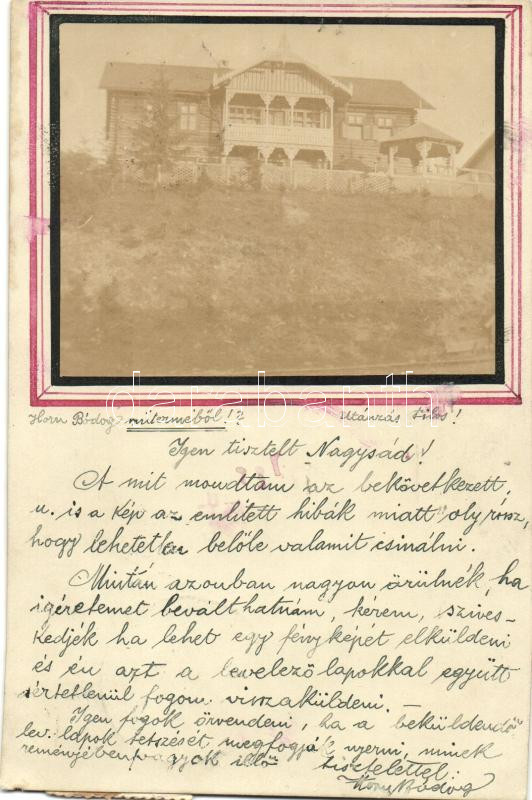 darabanth
Horn Bódog műterméből!? Utánzás tilos!
Igen tisztelt Nagysád!
A mit mondtam az bekövetkezett,
u. is a kép az említett hibák miatt oly rossz,
hogy lehetetlen belőle valamit csinálni.
Miután azonban nagyon örülnék, ha
igéretemet beválthatnám, kérem, szives-
kedjék ha lehet egy fényképét elküldeni
és én azt a levelező lapokkal együtt
sértetlenül fogom visszaküldeni. –
Igen fogok örvendeni, ha a beküldendő
lev. lapok tetszését megfogják nyerni, minek
reményében vagyok illő tisztelettel:
Horn Bódog